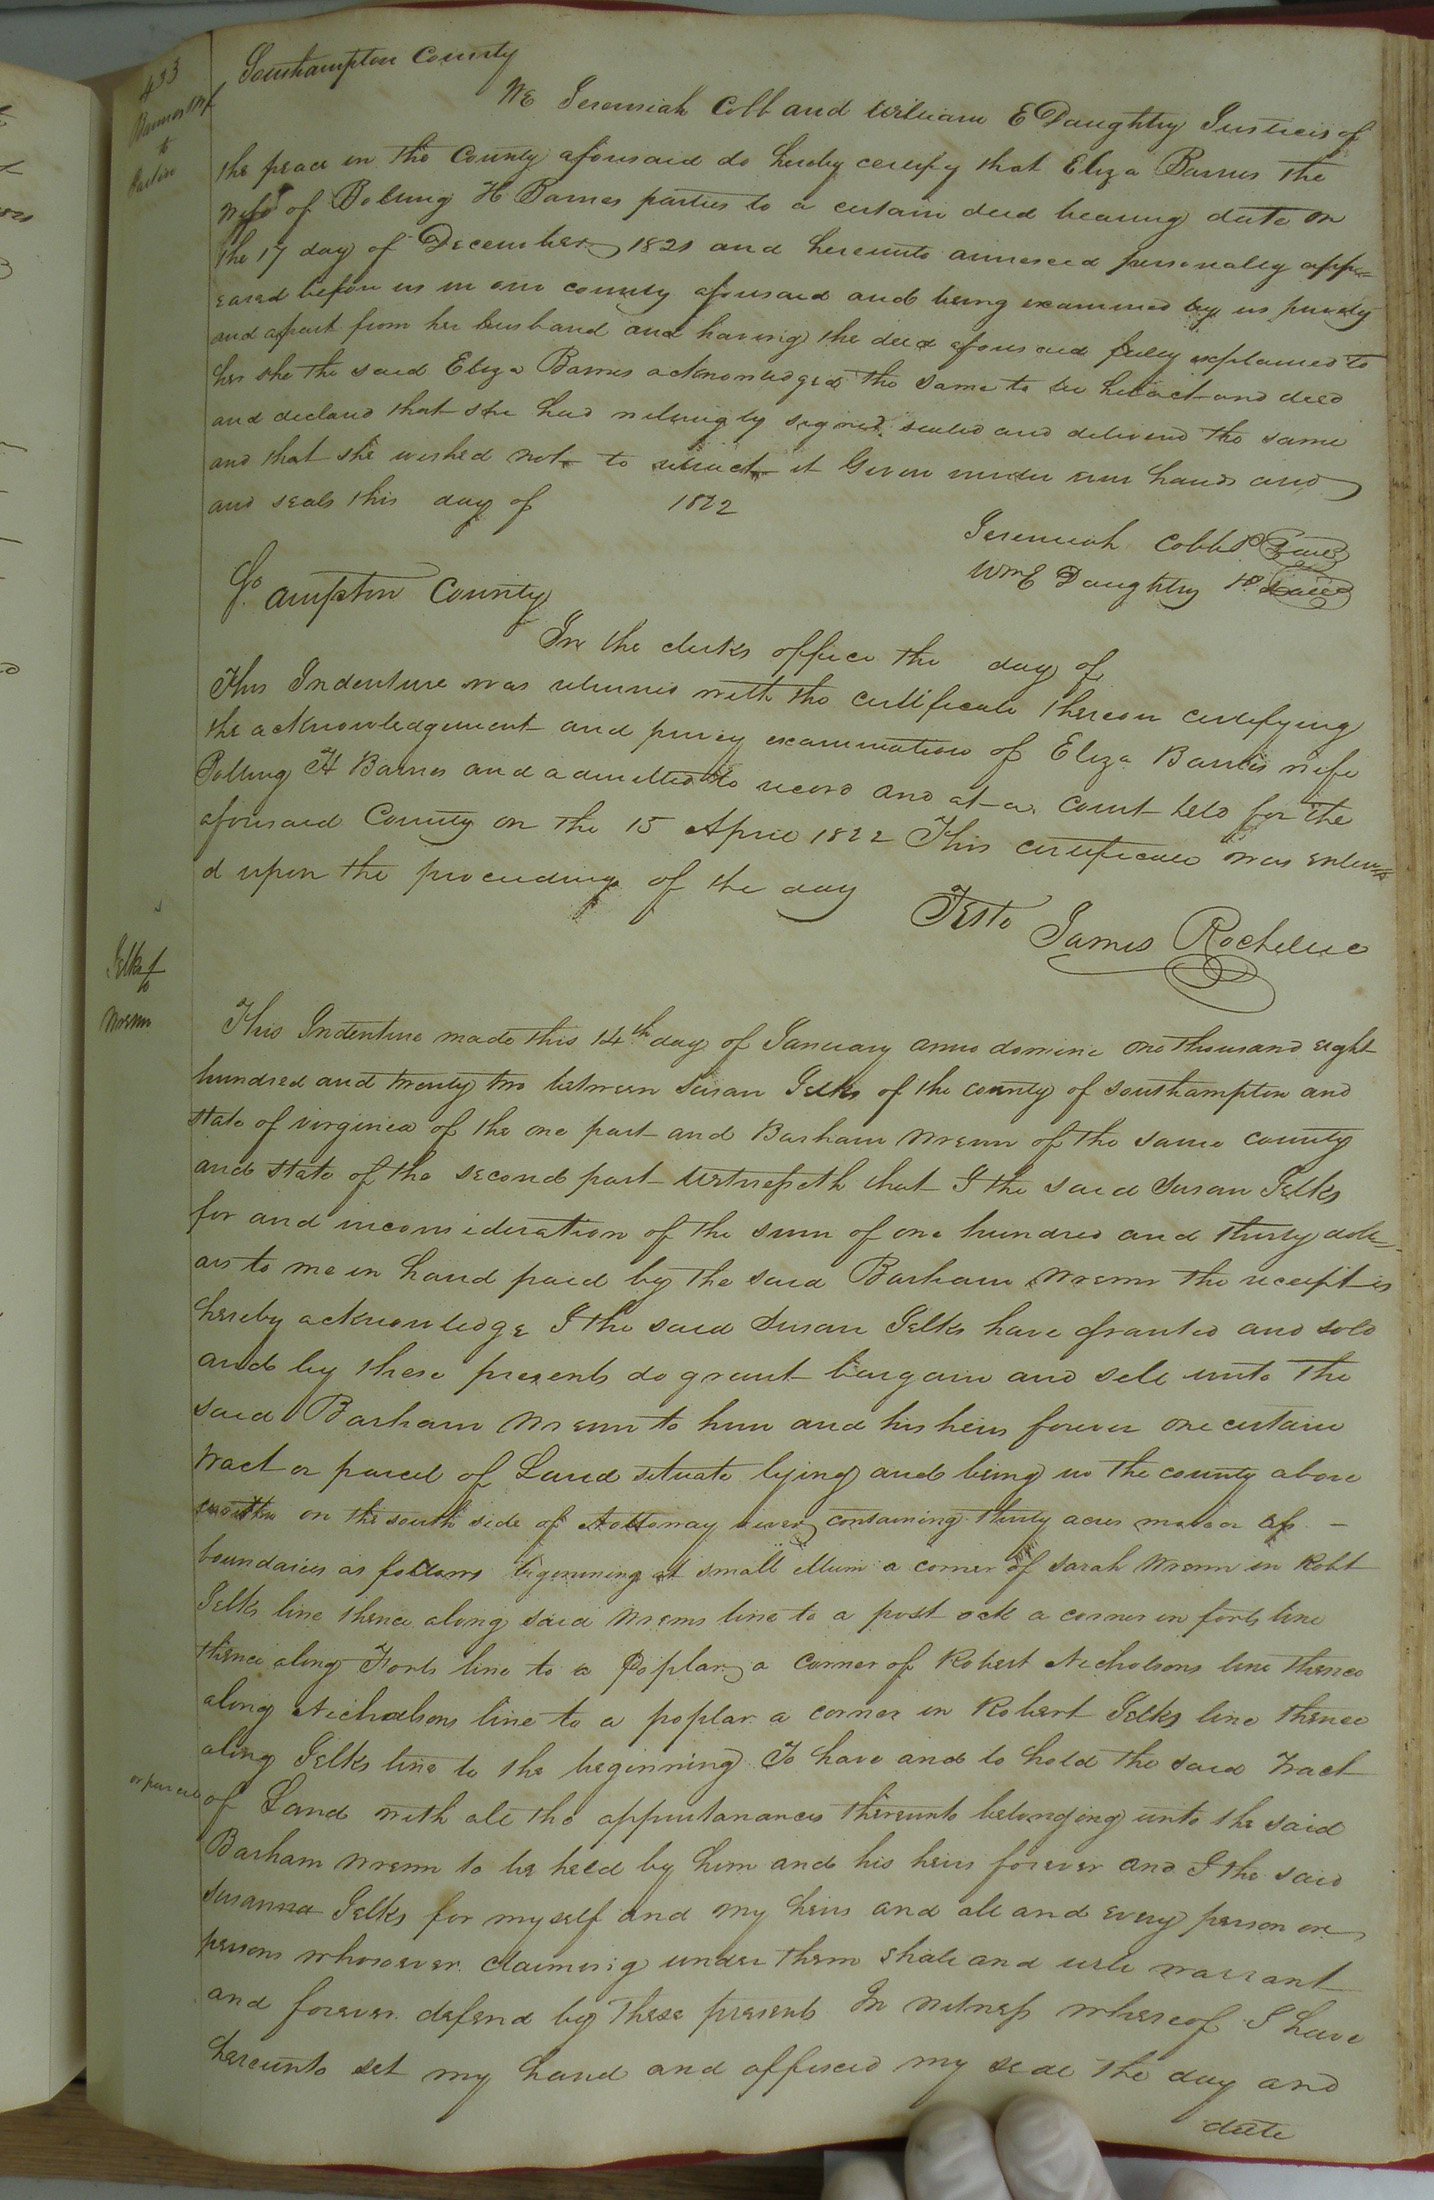 433
Barnes & wf
to
Southampton County
We Jeremiah Cobb and William E Daughtry Justices of
the peace in the County aforesaid do hereby certify that Eliza Barnes the
wife of Bolling H Barnes parties to a certain deed bearing date on
the 17 day of December 1821 and hereunto annexed personally app=
eared before us in our county aforesaid and being examined by us privily
and apart from her husband and having the deed aforesaid fully explained to
her she the said Eliza Barnes acknowledged the same to be her act and deed
and declard that she had willingly signed sealed and deliverd the same
and that she wished not to retract it Given under our hands and
and seals this day of 1822
Jeremiah Cobbs Seal
Wm E Daughtry Seal
So ampton County
In the clerks office the day of
This Indenture was returned with the certificate thereon certifying
the acknowledgement and privy examination of Eliza Barnes wife
Bolling H Barnes and admitted to record and at a court held for the
aforesaid County on the 15 April 1822 This certificate was entere
d upon the proceedings of the day
Teste James Rochelle
Jelks
to
Wrenn
This Indenture made this 14th day of January anno domini one thousand eight
hundred and twenty two between Susan Jelks of the county of Southampton and
state of virginia of the one part and Barham Wrenn of the same county
and state of the second part Witnesseth that I the said Susan Jelks
for and inconsideration of the sum of one hundred and thirty doll=
ars to me in hand paid by the said Barham Wrenn the receipt is
hereby acknowledge I the said Susan Jelks have granted and sold
and by these presents do grant bargain and sell unto the
said Barham Wrenn to him and his heirs forever one certain
tract or parcel of Land situate lying and being in the county above
on the south side of Nottoway river containing thirty acres more or less –
boundaries as follows begenning at small ellum a corner of Sarah Wrenn in Robt
Jelks line thence along said Wrenns line to a post ock a corner in forts line
thence along Forts line to a Poplar a corner of Robert Nicholsons line thence
along Nicholsons line to a poplar a corner in Robert Jelks line thence
along Jelks line to the beginning To have and to hold the said tract
or parcel
of Land with all the appurtanances thereunto belonging unto the said
Barham Wrenn to be held by him and his heirs forever and I the said
Susanna Jelks for myself and my heirs and all and every person or
persons whosoever claiming under them shall and will warrant
and forever defend by these presents In witness whereof I have
hereunto set my hand and affixed my seal the day and
date